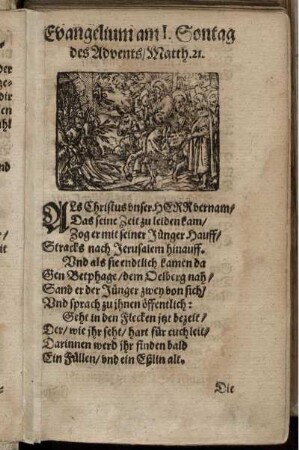 Evangelium am I. Sontag
des Advents/Matth. 21.
ALs Christus vnser HERR vernam/
Das seine Zeit zu leiden kam/
Zog er mit seiner Jünger Hauff/
Stracks nach Jerusalem hinauff.
Vnd als sie endtlich kamen da
Gen Betphage/dem Oelberg nah/
Sand er der Jünger zwey von sich/
Vnd sprach zu jhnen öffentlich:
Geht in den Flecken jtzt bereit/
Der/wie jhr seht/hart für euch leit/
Darinnen werd jhr finden bald
Ein Füllen/vnd ein Eßlin alt.
Die